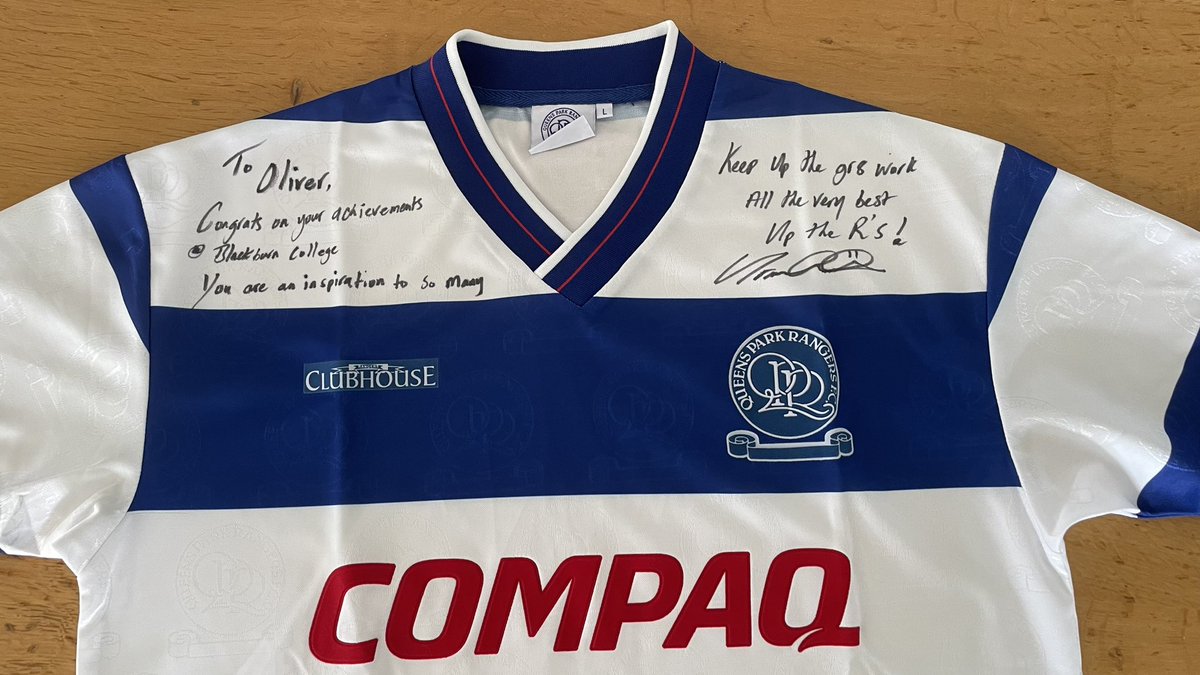 QUEENS PARK RANGERS
L
To Oliver,
Congrats on your achievements
@ Blackburn College
You are an inspiration to so many
Keep Up the gr8 work
All the very best
Up the R's!
RANGERS
CLUBHOUSE
QUEENS PARK RANGERS F.C.
QPR
COMPAQ